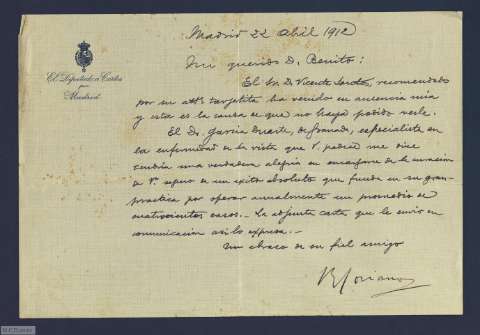 Madrid 22 Abril 1912
El Diputado a Cortes
por
Madrid
Mi querido D. Benito:
El Sr. D. Vicente, recomendado
por su atta tarjetita ha venido en ausencia mia
y esta es la causa de que no haya podido verle.
El Dr. García Duarte, de Granada, especialista en
la enfermedad de la vista que V. padece me dice
tendria una verdadera alegria en encargarse de la curacion
de V. seguro de un exito absoluto que funda en su gran
practica por operar anualmente un promedio de
cuatrocientos casos. La adjunta carta que le envio en
comunicacion asi lo expresa.-
Un abrazo de su fiel amigo
R Soriano